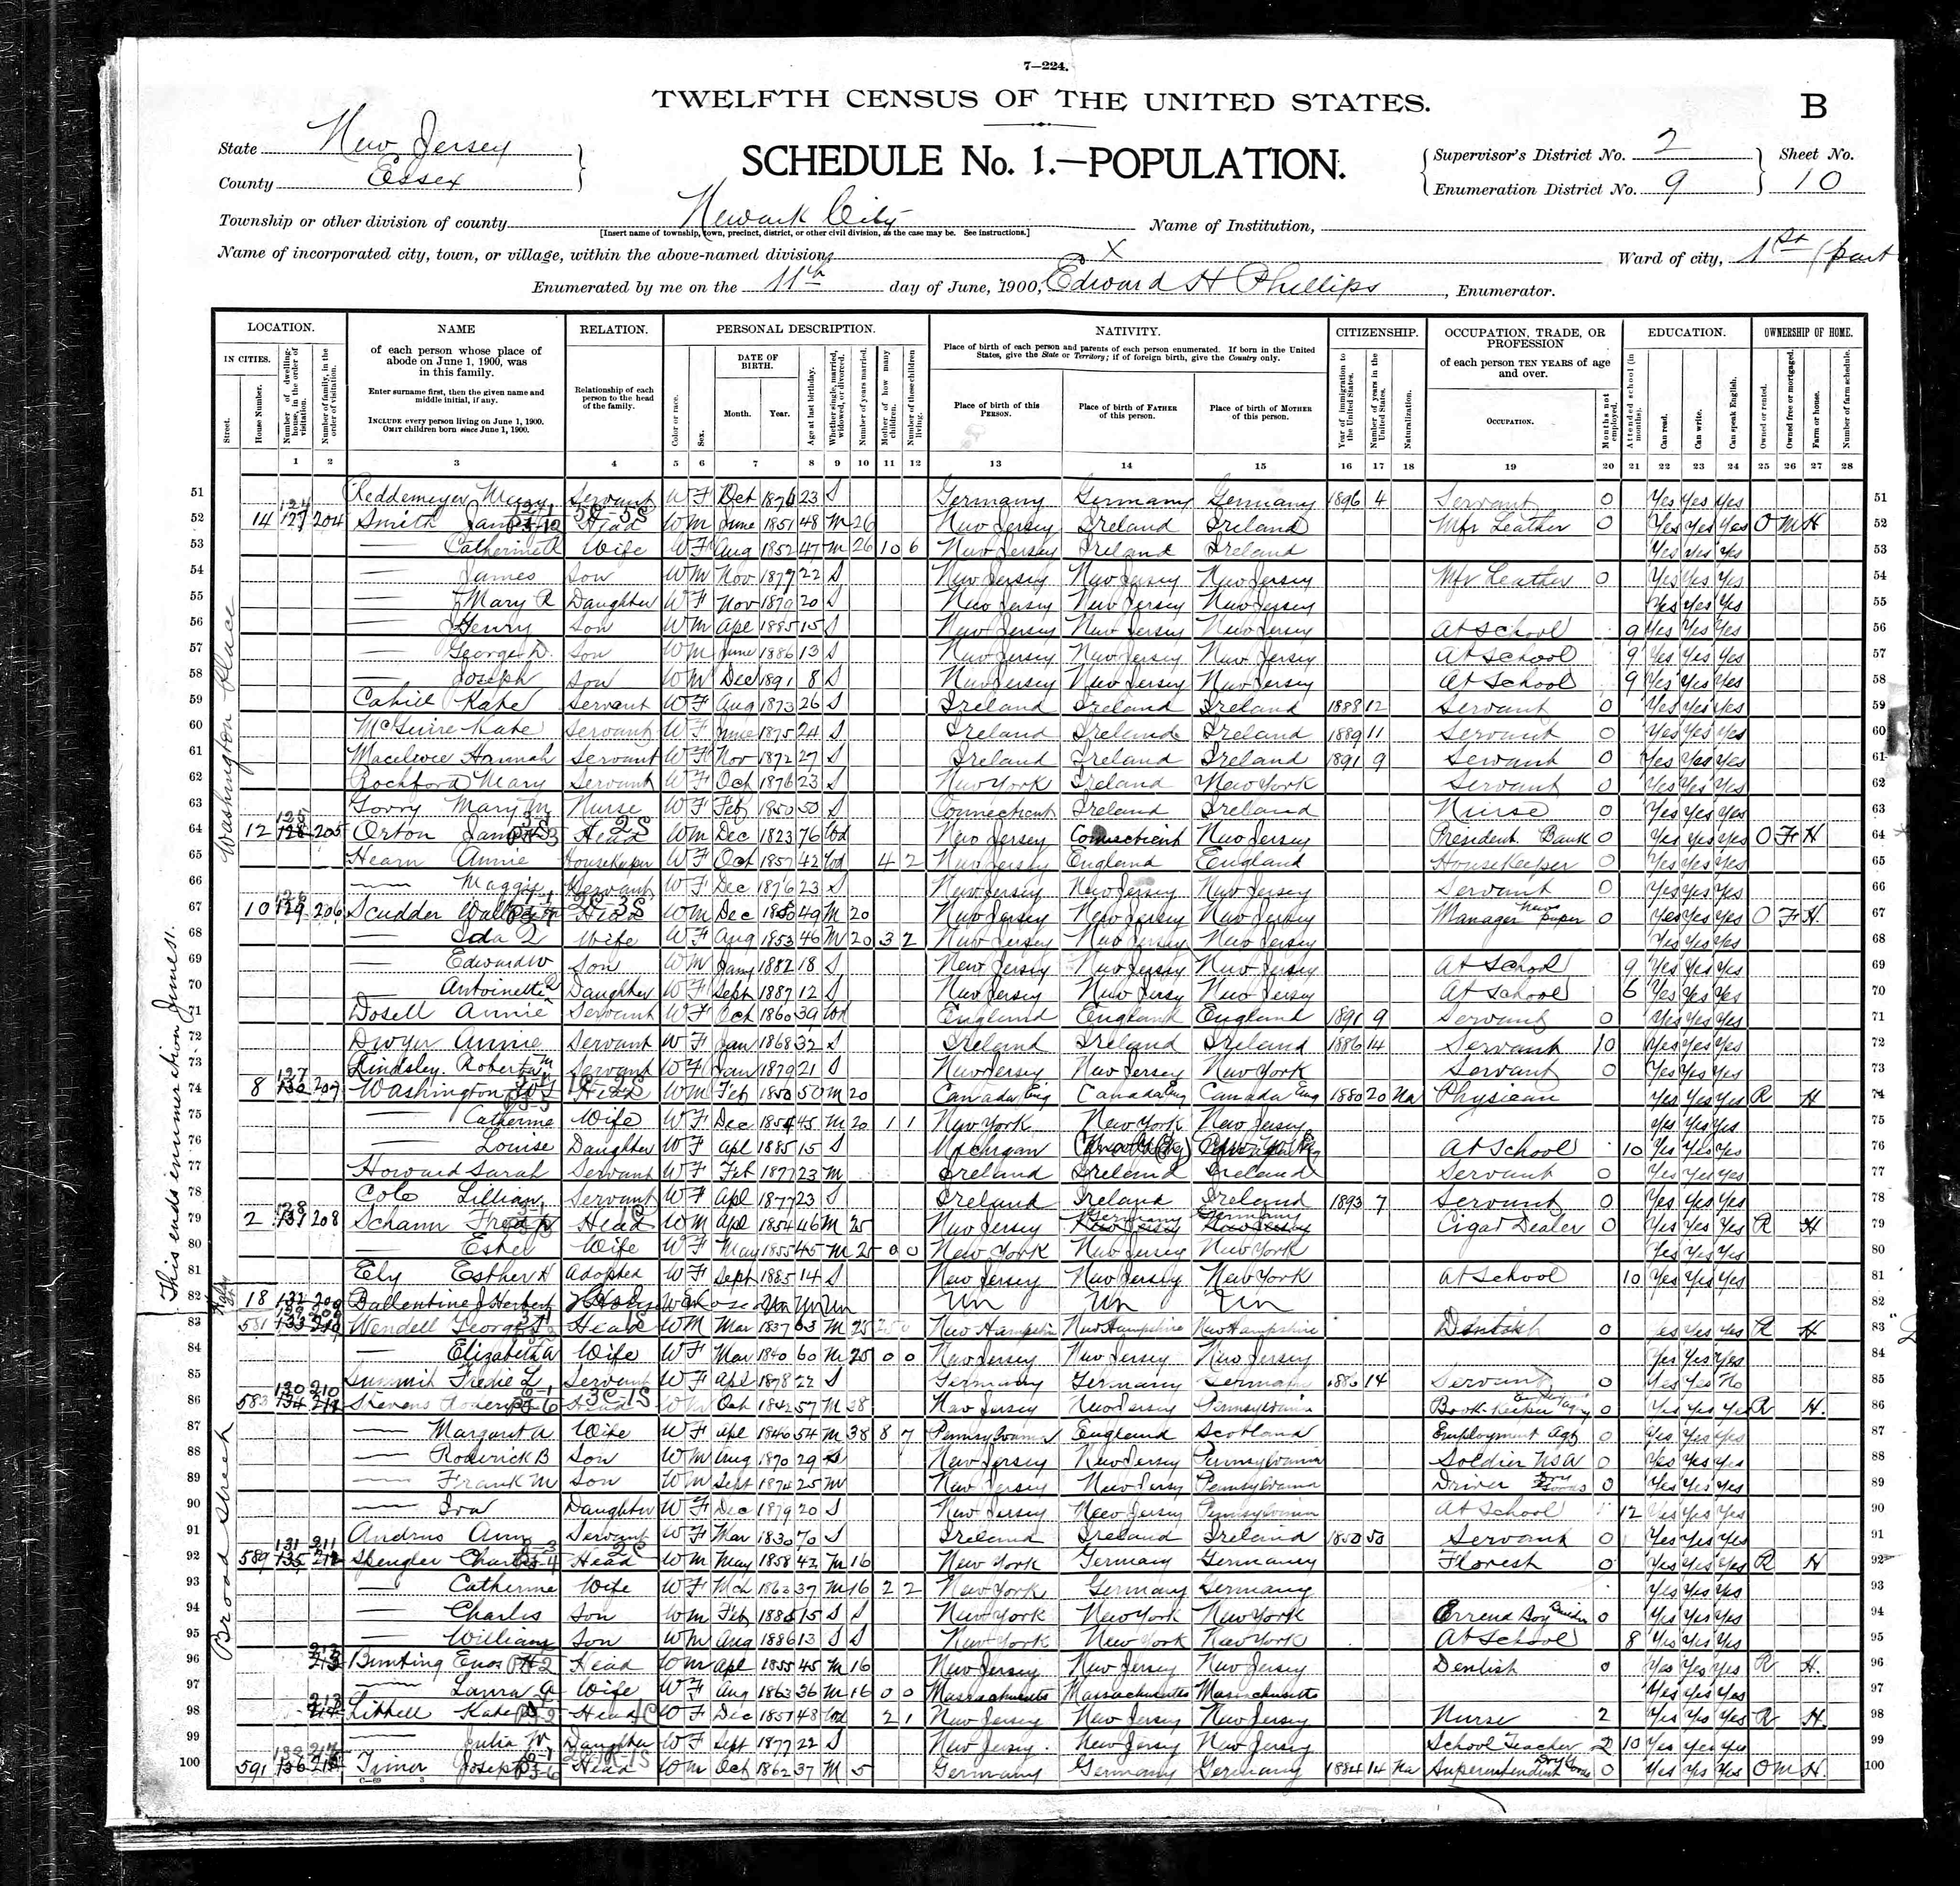 7—224.
TWELFTH CENSUS OF THE UNITED STATES.
B
State New Jersey
County Essex
SCHEDULE No. 1.—POPULATION.
Supervisor's District No. 2
Enumeration District No. 9
Sheet No. 10
Township or other division of county Newark City
[Insert name of township, town, precinct, district, or other civil division, as the case may be. See instructions.]
Name of Institution,
Name of incorporated city, town, or village, within the above-named division, X
Ward of city, 1st (part
Enumerated by me on the 11th day of June, 1900, Edward H Phillips, Enumerator.
LOCATION. NAME RELATION. PERSONAL DESCRIPTION. NATIVITY. CITIZENSHIP. OCCUPATION, TRADE, OR PROFESSION EDUCATION. OWNERSHIP OF HOME.
IN CITIES.
Street. House Number. Number of dwelling-house, in the order of visitation. Number of family, in the order of visitation.
of each person whose place of abode on June 1, 1900, was in this family.
Enter surname first, then the given name and middle initial, if any.
INCLUDE every person living on June 1, 1900. OMIT children born since June 1, 1900.
Relationship of each person to the head of the family.
Color or race. Sex. DATE OF BIRTH. Month. Year. Age at last birthday. Whether single, married, widowed, or divorced. Number of years married. Mother of how many children. Number of these children living.
Place of birth of each person and parents of each person enumerated. If born in the United States, give the State or Territory; if of foreign birth, give the Country only.
Place of birth of this PERSON. Place of birth of FATHER of this person. Place of birth of MOTHER of this person.
Year of immigration to the United States. Number of years in the United States. Naturalization.
of each person TEN YEARS of age and over.
OCCUPATION. Months not employed.
Attended school (in months). Can read. Can write. Can speak English.
Owned or rented. Owned free or mortgaged. Farm or house. Number of farm schedule.
1 2 3 4 5 6 7 8 9 10 11 12 13 14 15 16 17 18 19 20 21 22 23 24 25 26 27 28
Washington Place
This ends enumeration June 1st.
Broad Street
51 Reddemeyer Mary Servant W F Oct 1876 23 S Germany Germany Germany 1896 4 Servant 0 Yes Yes Yes 51
52 14 204 Smith James Head W M June 1851 48 M 26 New Jersey Ireland Ireland Mfr Leather 0 Yes Yes Yes O M H 52
53 — Catherine A Wife W F Aug 1852 47 M 26 10 6 New Jersey Ireland Ireland Yes Yes Yes 53
54 — James Son W M Nov 1877 22 S New Jersey New Jersey New Jersey Mfr Leather 0 Yes Yes Yes 54
55 — Mary R Daughter W F Nov 1879 20 S New Jersey New Jersey New Jersey Yes Yes Yes 55
56 — Henry Son W M Apl 1885 15 S New Jersey New Jersey New Jersey At School 9 Yes Yes Yes 56
57 — George D. Son W M June 1886 13 S New Jersey New Jersey New Jersey At School 9 Yes Yes Yes 57
58 — Joseph Son W M Dec 1891 8 S New Jersey New Jersey New Jersey At School 9 Yes Yes Yes 58
59 Cahill Kate Servant W F Aug 1873 26 S Ireland Ireland Ireland 1888 12 Servant 0 Yes Yes Yes 59
60 McGuire Kate Servant W F June 1875 24 S Ireland Ireland Ireland 1889 11 Servant 0 Yes Yes Yes 60
61 Hannah Servant W F Nov 1872 27 S Ireland Ireland Ireland 1891 9 Servant 0 Yes Yes Yes 61
62 Rochford Mary Servant W F Oct 1876 23 S New York Ireland New York Servant 0 Yes Yes Yes 62
63 Mary M Nurse W F Feb 1850 50 S Connecticut Ireland Ireland Nurse 0 Yes Yes Yes 63
64 12 128 205 Orton James Head W M Dec 1823 76 Wd New Jersey Connecticut New Jersey President Bank 0 Yes Yes Yes O F H 64
65 Hearn Annie Housekeeper W F Oct 1857 42 Wd 4 2 New Jersey England England Housekeeper 0 Yes Yes Yes 65
66 — Maggie Servant W F Dec 1876 23 S New Jersey New Jersey New Jersey Servant 0 Yes Yes Yes 66
67 10 129 206 Scudder Head W M Dec 1850 49 M 20 New Jersey New Jersey New Jersey Manager News paper 0 Yes Yes Yes O F H. 67
68 — Ida Q Wife W F Aug 1853 46 M 20 3 2 New Jersey New Jersey New Jersey Yes Yes Yes 68
69 — Edward W Son W M Jany 1882 18 S New Jersey New Jersey New Jersey At School 9 Yes Yes Yes 69
70 — Antoinette Q Daughter W F Sept 1887 12 S New Jersey New Jersey New Jersey At School 6 Yes Yes Yes 70
71 Dosell Annie Servant W F Oct 1860 39 Wd England England England 1891 9 Servant 0 Yes Yes Yes 71
72 Dwyer Annie Servant W F Jan 1868 32 S Ireland Ireland Ireland 1886 14 Servant 10 Yes Yes Yes 72
73 Lindsley Roberta M Servant W F Jan 1879 21 S New Jersey New Jersey New York Servant 0 Yes Yes Yes 73
74 8 130 207 Washington Head W M Feb 1850 50 M 20 Canada Eng Canada Eng Canada Eng 1880 20 Na Physician Yes Yes Yes R H 74
75 — Catherine Wife W F Dec 1854 45 M 20 1 1 New York New York New Jersey Yes Yes Yes 75
76 — Louise Daughter W F Apl 1885 15 S Michigan At School 10 Yes Yes Yes 76
77 Howard Sarah Servant W F Feb 1877 23 M Ireland Ireland Ireland Servant 0 Yes Yes Yes 77
78 Cole Lillian Servant W F Apl 1877 23 S Ireland Ireland Ireland 1893 7 Servant 0 Yes Yes Yes 78
79 2 131 208 Schann Fred Head W M Apl 1854 46 M 25 New Jersey Germany Germany Cigar Dealer 0 Yes Yes Yes R H 79
80 — Esther Wife W F May 1855 45 M 25 0 0 New York New Jersey New York Yes Yes Yes 80
81 Ely Esther H Adopted W F Sept 1885 14 S New Jersey New Jersey New York At School 10 Yes Yes Yes 81
82 18 132 209 Ballentine J Herbert Un Un Un Un Un Un 82
83 581 133 Wendell George Head W M Mar 1837 63 M 25 New Hampshire New Hampshire New Hampshire Dentist 0 Yes Yes Yes R H 83
84 — Elizabeth A Wife W F Mar 1840 60 M 25 0 0 New Jersey New Jersey New Jersey Yes Yes Yes 84
85 Summit Irene L Servant W F Apl 1878 22 S Germany Germany German 1886 14 Servant 0 Yes Yes No 85
86 583 134 Stevens Head W M Oct 1842 57 M 38 New Jersey New Jersey Pennsylvania Book-Keeper 0 Yes Yes Yes R H. 86
87 — Margaret A Wife W F Apl 1846 54 M 38 8 7 Pennsylvania England Scotland Employment Agt 0 Yes Yes Yes 87
88 — Roderick B Son W M Aug 1870 29 S New Jersey New Jersey Pennsylvania Soldier USA 0 Yes Yes Yes 88
89 — Frank M Son W M Sept 1874 25 M New Jersey New Jersey Pennsylvania Driver Dry Goods 0 Yes Yes Yes 89
90 — Iva Daughter W F Dec 1879 20 S New Jersey New Jersey Pennsylvania At School 12 Yes Yes Yes 90
91 Andrus Ann Servant W F Mar 1830 70 S Ireland Ireland Ireland 1850 50 Servant 0 Yes Yes Yes 91
92 589 135 Spengler Charles Head W M May 1858 42 M 16 New York Germany Germany Florest 0 Yes Yes Yes R H 92
93 — Catherine Wife W F Mch 1863 37 M 16 2 2 New York Germany Germany Yes Yes Yes 93
94 — Charles Son W M Feb 1885 15 S New York New York New York Errend Boy 0 Yes Yes Yes 94
95 — William Son W M Aug 1886 13 S New York New York New York At School 8 Yes Yes Yes 95
96 213 Bunting Enos Head W M Apl 1855 45 M 16 New Jersey New Jersey New Jersey Dentist 0 Yes Yes Yes R H. 96
97 — Laura A Wife W F Aug 1863 36 M 16 0 0 Massachusetts Massachusetts Massachusetts Yes Yes Yes 97
98 214 Littell Kate Head W F Dec 1851 48 Wd 2 1 New Jersey New Jersey New Jersey Nurse 2 Yes Yes Yes R H. 98
99 — Julia Daughter W F Sept 1877 22 S New Jersey New Jersey New Jersey School Teacher 2 10 Yes Yes Yes 99
100 591 136 215 Joseph Head W M Oct 1862 37 M 5 Germany Germany Germany 1884 14 Na Superintendent Dry Goods 0 Yes Yes Yes O M H. 100
C—69 3